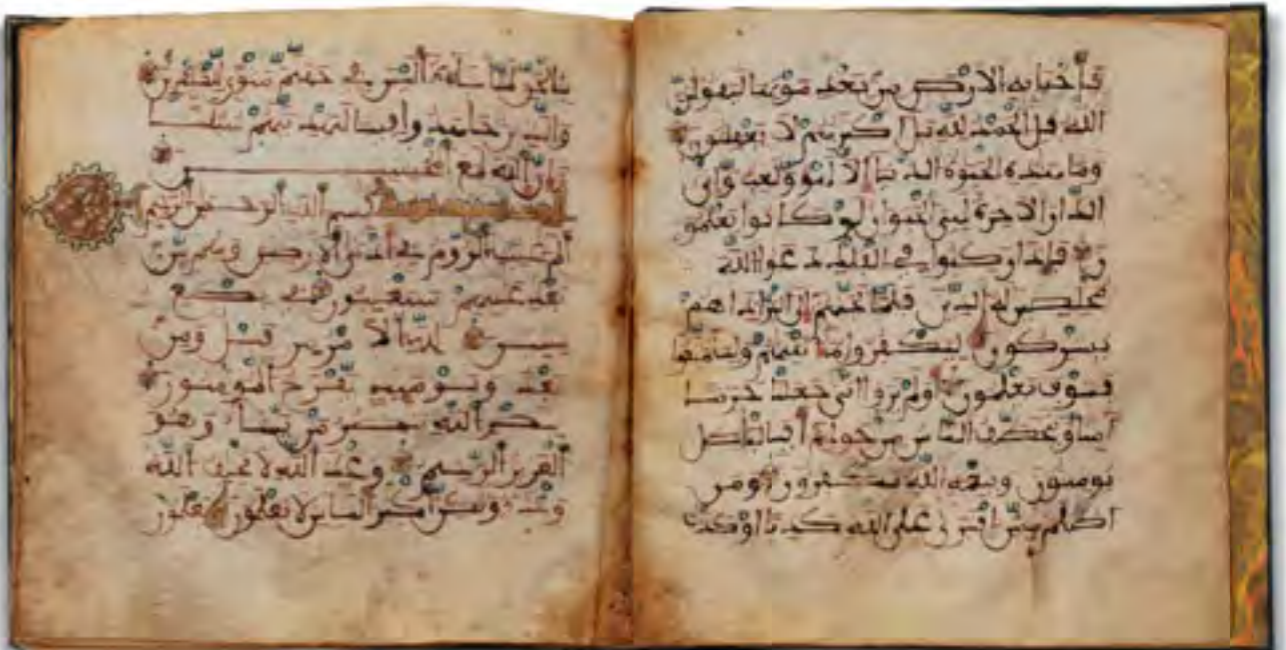 فأحيا به الارض من بعد موتها ليقولن
الله قل الحمد لله بل اكثرهم لا يعقلون
وما هذه الحيوة الدنيا الا لهو ولعب وان
الدار الاخرة لهي الحيوان لو كانوا يعلمو
ن فاذا ركبوا في الفلك دعوا الله
مخلصين له الدين فلما نجيهم الى البر اذا هم
يشركون ليكفروا بما ءاتينهم وليتمتعوا
فسوف يعلمون اولم يروا انا جعلنا حرما
ءامنا ويتخطف الناس من حولهم افبالبطل
يومنون وبنعمة الله يكفرون ومن
اظلم ممن افترى على الله كذبا او كذب
بالحق لما جاءه اليس في جهنم مثوى للكفرين
والذين جهدوا فينا لنهدينهم سبلنا
وان الله لمع المحسنين
بسم الله الرحمن الرحيم
الم غلبت الروم في ادنى الارض وهم من
بعد غلبهم سيغلبون في بضع
سنين لله الامر من قبل ومن
بعد ويومئذ يفرح المومنون
بنصر الله ينصر من يشاء وهو
العزيز الرحيم وعد الله لا يخلف الله
وعده ولكن اكثر الناس لا يعلمون يعلمون